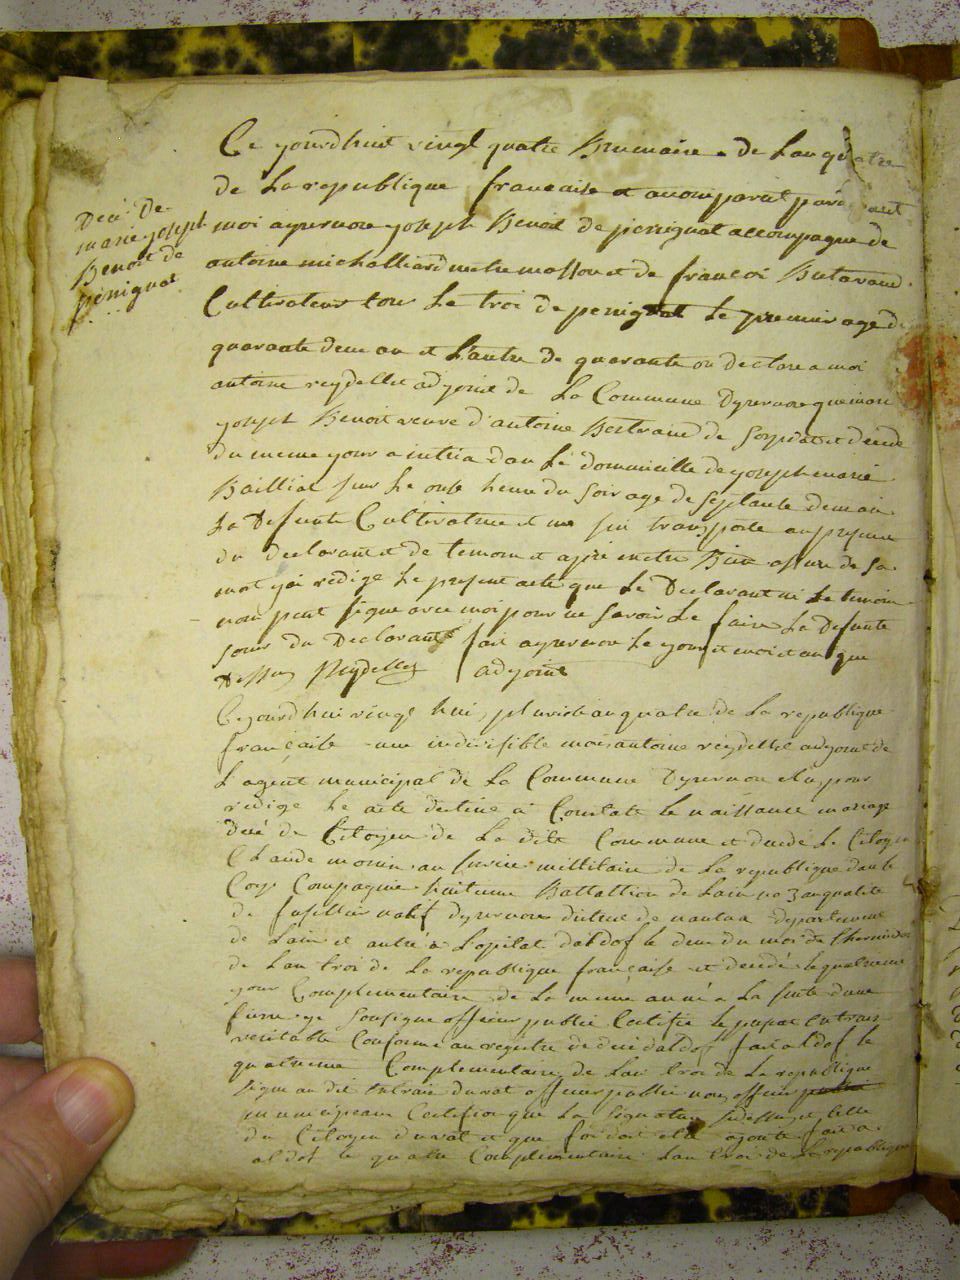 Ce yourdhuit vingt quatre Brumaire de Lan quatre
de La republique francaise et a comparut par
moi a yzernore yoseph Benoit de perignat accompagne de
antoine michalliard metre masson et de francoi Butavand
Cultivateur tous Le troi de perignat Le premier age de
quarante deux an et Lautre de quarante on declare a moi
antoine reydellet adjoint de La Commune dyzernore que marie
yoseph Benoit veuve d'antoine Bertrand de et decede
du meme your a intria dan Le domicille de yoseph marie
Bailliat sur Le onse heure du soir age de septante deux an
La defunte Cultivatrice et me sui transporte
du declarant et de temoin et apre metre Bien assure de sa
mort yai redige Le present acte que Le Declarant ni Le temoin
non peut signe avec moi pour ne savoir Le faire La defunte
soeur du Declarant fait a yzernore Le your et moi et an que
dessus Reydellet adjoint
Deces De
marie yoseph
Benoit de
perignat
Ce yourdhui vingt hui pluviose an quatre de La republique
francaise une indivisible moi antoine reydellet adjoint de
L agent municipal de La Commune Dyzernore elu pour
redige Le acte destine a Constate Le naissance mariage
de Citoyen de La dite Commune et decede Le Citoyen
Claude monin au service millitaire de La republique dan le
Cors Compagnie huitieme Battallion de Lain no 3 an qualite
de fusillier natif dyzernore district de nantua departement
de Lain et antre a Lopital daldof le deux du moi de thermidor
de Lan troi de La republique francaise et decede le quatrieme
your Complementaire de La meme anne a La suite dune
fievre ye sousigne officier public Certifie le present extrait
veritable Conforme au registre de dece daldof fait aldof le
quatrieme Complementaire de Lan troi de La republique
signe au dit Extrait duvat officier public nous officier
municipeau Certifion que La signature sidessus et Celle
du Citoyen duvat et que foi doit etre ajoute fait a
aldof le quatre Complementaire Lan troi de La republique